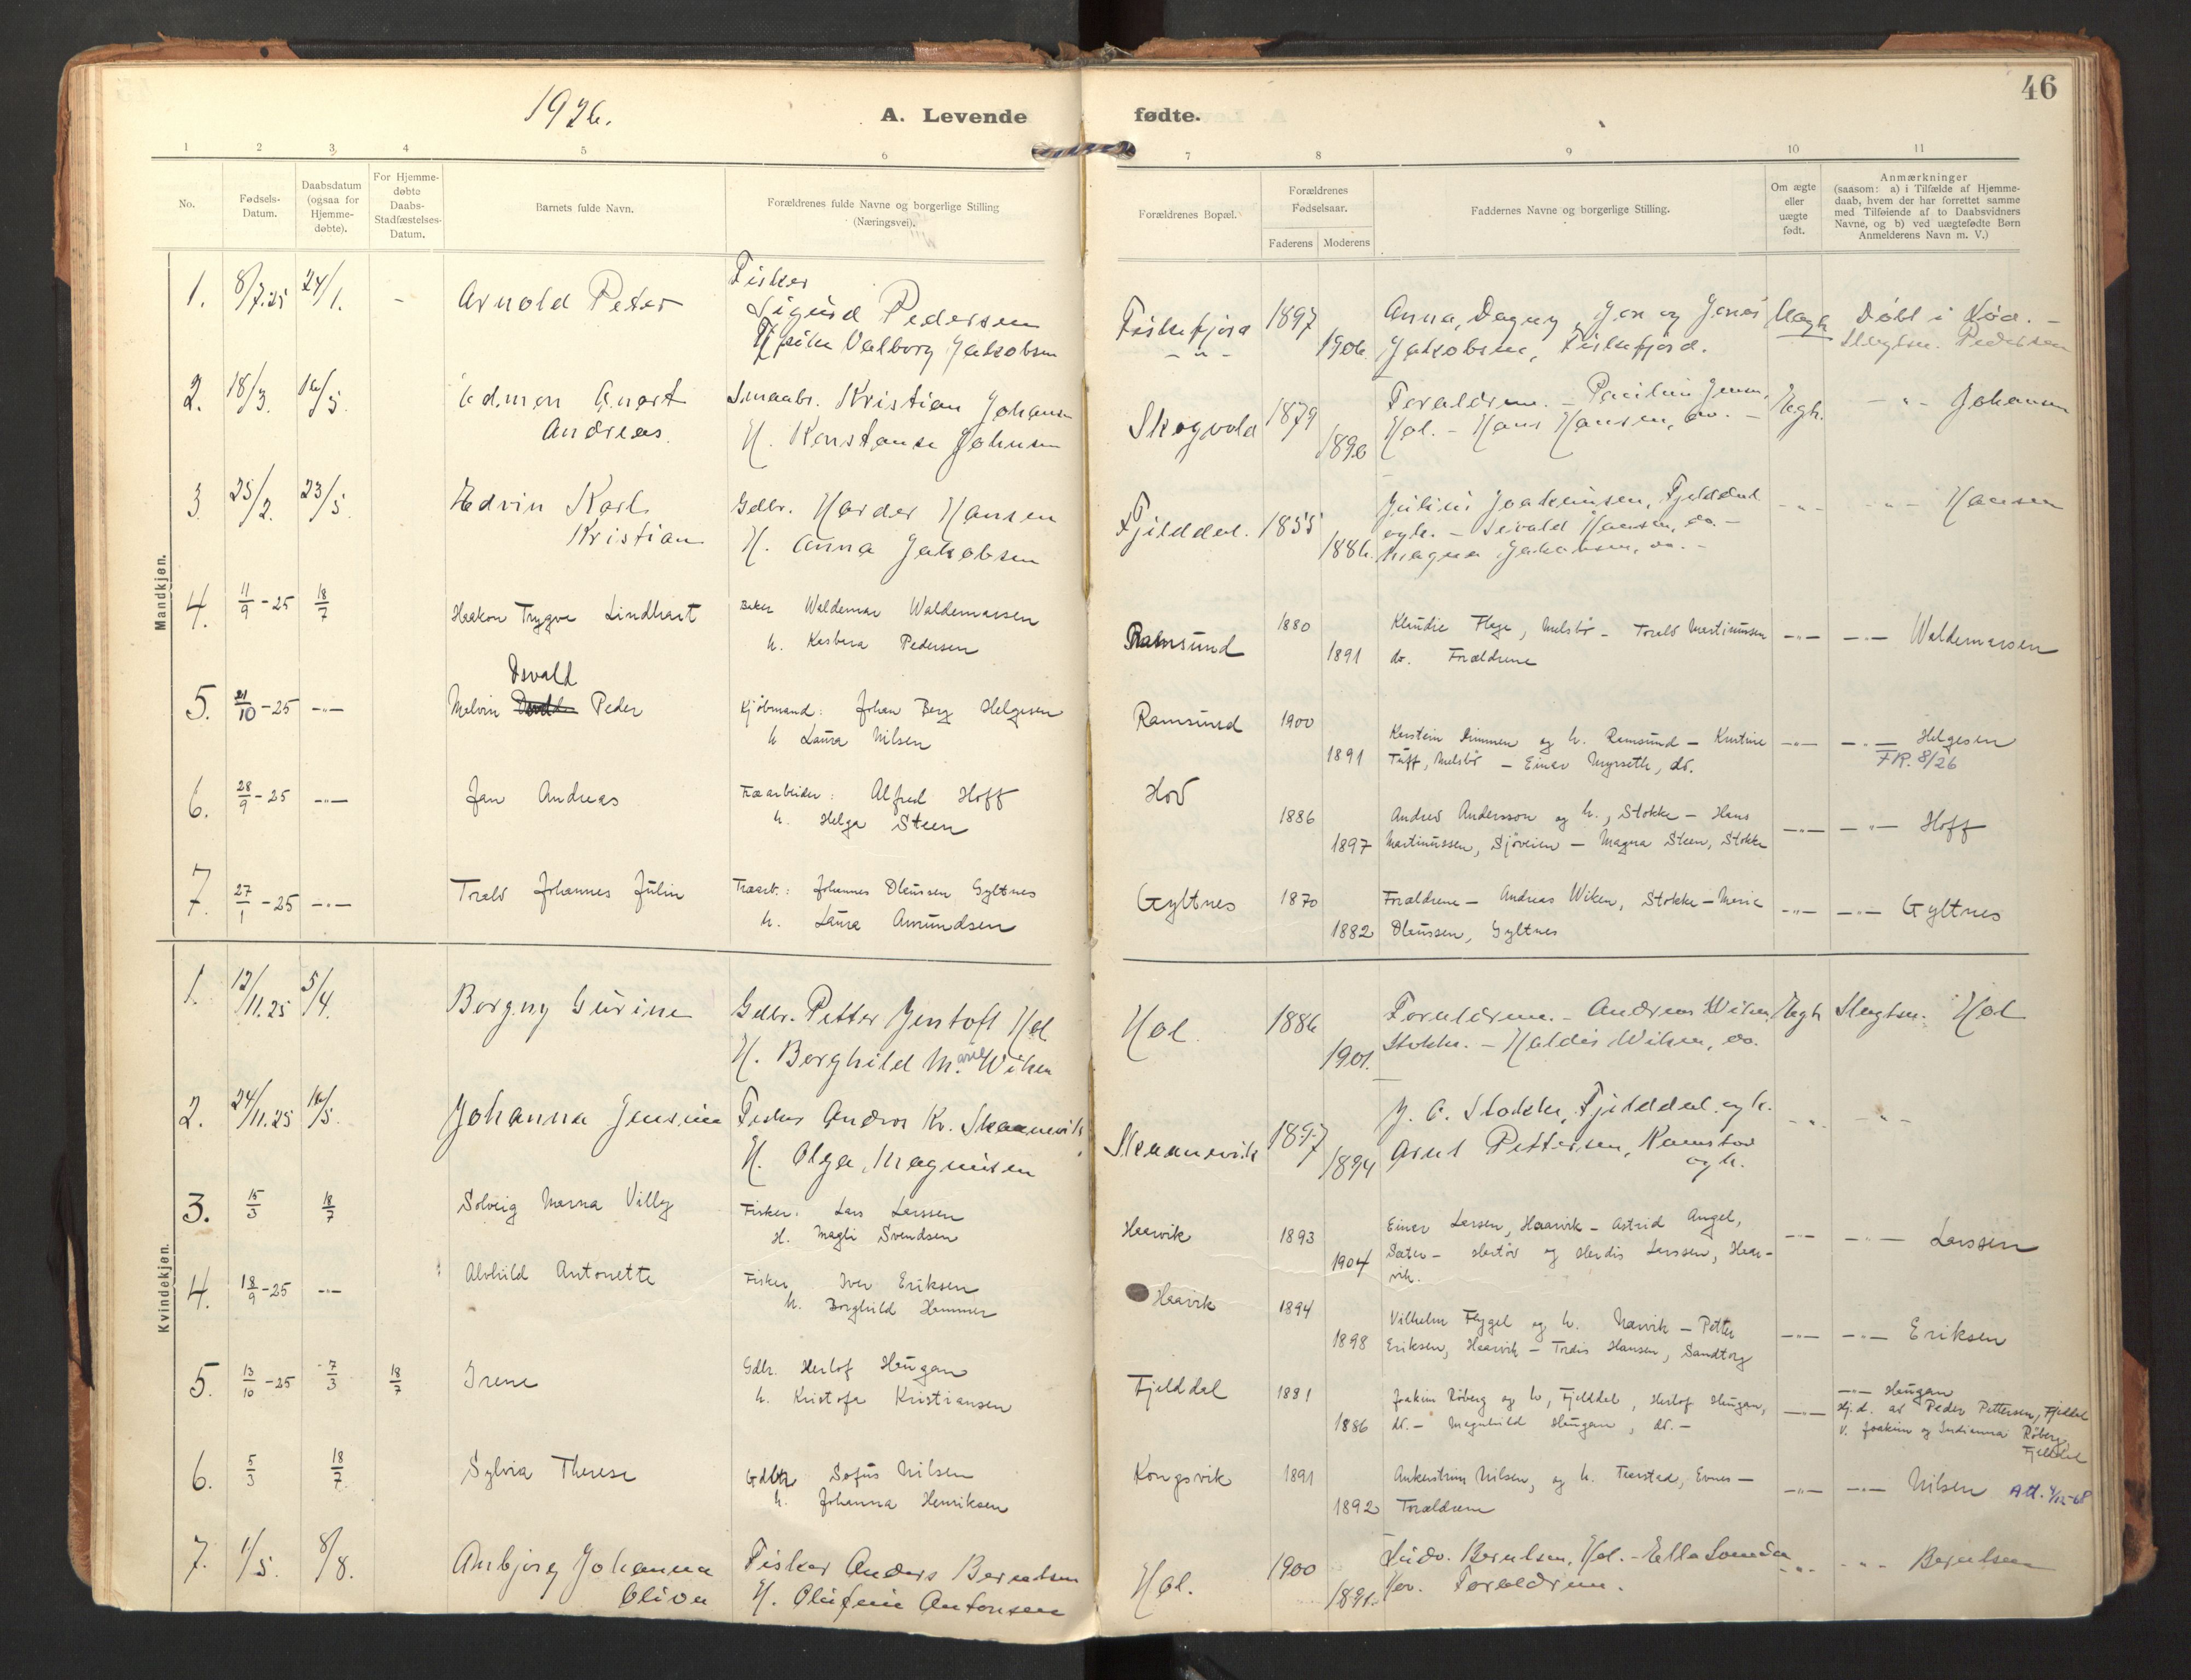 46
1926.
A. Levende fødte.
1 2 3 4 5 6 7 8 9 10 11
No.
Fødsels-
Datum.
Daabsdatum
(ogsaa for
Hjemme-
døbte).
For Hjemme-
døbte
Daabs-
Stadfæstelses-
Datum.
Barnets fulde Navn.
Forældrenes fulde Navne og borgerlige Stilling
(Næringsvei).
Forældrenes Bopæl.
Forældrenes
Fødselsaar.
Faderens Moderens
Faddernes Navne og borgerlige Stilling.
Om ægte
eller
uægte
født.
Anmærkninger
(saasom: a) i Tilfælde af Hjemme-
daab, hvem der har forrettet samme
med Tilføiende af to Daabsvidners
Navne, og b) ved uægtefødte Børn
Anmelderens Navn m. V.)
Mandkjøn.
1. 8/7.25 24/1. - Arnold Peter
Fisker
Sigurd Pedersen
Valborg Jakobsen
Fiskefjord 1897
- " - 1906
Anna, Dagny, Jen og Jonas
Jakobsen, Fiskefjord.
Uægte
Døbt i Lød. -
Slegtsn. Pedersen
2. 18/3. 16/5. Edmon Anart
Andreas.
Smaabr. Kristian Johansen
H. Konstanse Johnsen
Skogvold 1879
1896
Forældrene. - Paulin Jensen,
Hol. - Hans Hansen, do. -
Egte.
- " - Johansen
3. 25/2. 23/5. Edvin Karl
Kristian
Gdbr. Harder Hansen
H. Anna Jakobsen
Fjelddal. 1855
1886.
Julius Joakimsen, Fjelddal
og h. - Sevald Hansen, do. -
Magna Jakobsen, do. -
- " - - " - Hansen
4. 11/9-25 18/7 Haakon Trygve Lindhart
Baker Waldemar Waldemarsen
h. Kasbara Pedersen
Ramsund 1880
1891
Klaudie Flage, Melsbø - Toralv Martinussen
do. Forældrene
- " - - " - Waldemarsen
5. 21/10-25 - " - Osvald
Melvin Peder
Kjøbmand: Johan Berg Helgesen
h. Laura Nilsen
Ramsund 1900
1891
Karstein Dimmen og h. Ramsund - Kristine
Tuff, Melsbø - Einar Myrseth, do.
- " - - " - Helgesen
F.R. 8/26
6. 28/9-25 - " - Jan Andreas
Træarbeider: Alfred Hoff
h. Helga Steen
Hov
1886
1897
Andrev Andersson og h., Stokke - Hans
Martinussen, Sjøveien - Magna Steen, Stokke
- " - - " - Hoff
7. 27/1-25 - " - Toralv Johannes Julin
Træarb.: Johannes Olaussen Gyltnes
h. Laura Amundsen
Gyltnes 1870
1882
Forældrene - Andreas Wiken, Stokke - Marie
Olaussen, Gyltnes
- " - - " - Gyltnes
Kvindekjøn.
1. 12/11.25 5/4. Borgny Gurine
Gdbr. Petter Jentoft Hol
H. Borghild Marie Wiken
Hol. 1886
1901.
Forældrene. - Andreas Wiken,
Stokke. - Haldis Wiken, do.
Egte Slegtsn. Hol
2. 24/11.25 16/5. Johanna Jensine
Fisker Andor Kr. Skaanevik
H. Olga Magnusen
Skaanevik 1897
1894
J. C. Stokke, Fjelddal og h.
Arnt Pettersen, Ramstov
og h.
- " - - " -
3. 15/3 18/7 Solveig Marna Villy
Fisker: Lars Larssen
H. Magli Svendsen
Haarvik 1893
1904
Einar Larsen, Haarvik - Astrid Angel,
Sæter - Hertøv og Herdis Larssen, Haar-
vik.
- " - - " - Larssen
4. 18/9-25 - " - Alvhild Antonette
Fisker Iver Eriksen
h. Borghild Hammer
Haarvik 1894
1898
Vilhelm Flygel og h. Narvik - Petter
Eriksen, Haarvik - Tordis Hansen, Sandtorg
- " - - " - Eriksen
5. 13/10-25 7/3 18/7 Irene
Gdbr. Herlof Haugan
h. Kristofa Kristiansen
Fjelddal 1881
1886
Joakim Røberg og h., Fjelddal, Herlof Haugan,
do. - Magnhild Haugan, do. -
- " - - " - Haugan
Hj.d. av Peder Pettersen, Fjelddal
v. Joakim og Indianna Røberg,
Fjelddal
6. 5/3 18/7. Sylvia Therese
Gdbr. Sofus Nilsen
h. Johanna Henriksen
Kongsvik 1891
1892
Ankerstrøm Nilsen, og h. Taarstad, Evenes -
Forældrene
- " - - " - Nilsen Att. 4/12-68
7. 1/5. 8/8. Anbjørg Johanna
Oliva
Fisker Anders Berntsen
H. Olufine Antonsen
Hol. 1900
1891.
Ludv. Berntsen, Hol. - Ella
Hov. Forældrene.
- " - - " - Berntsen